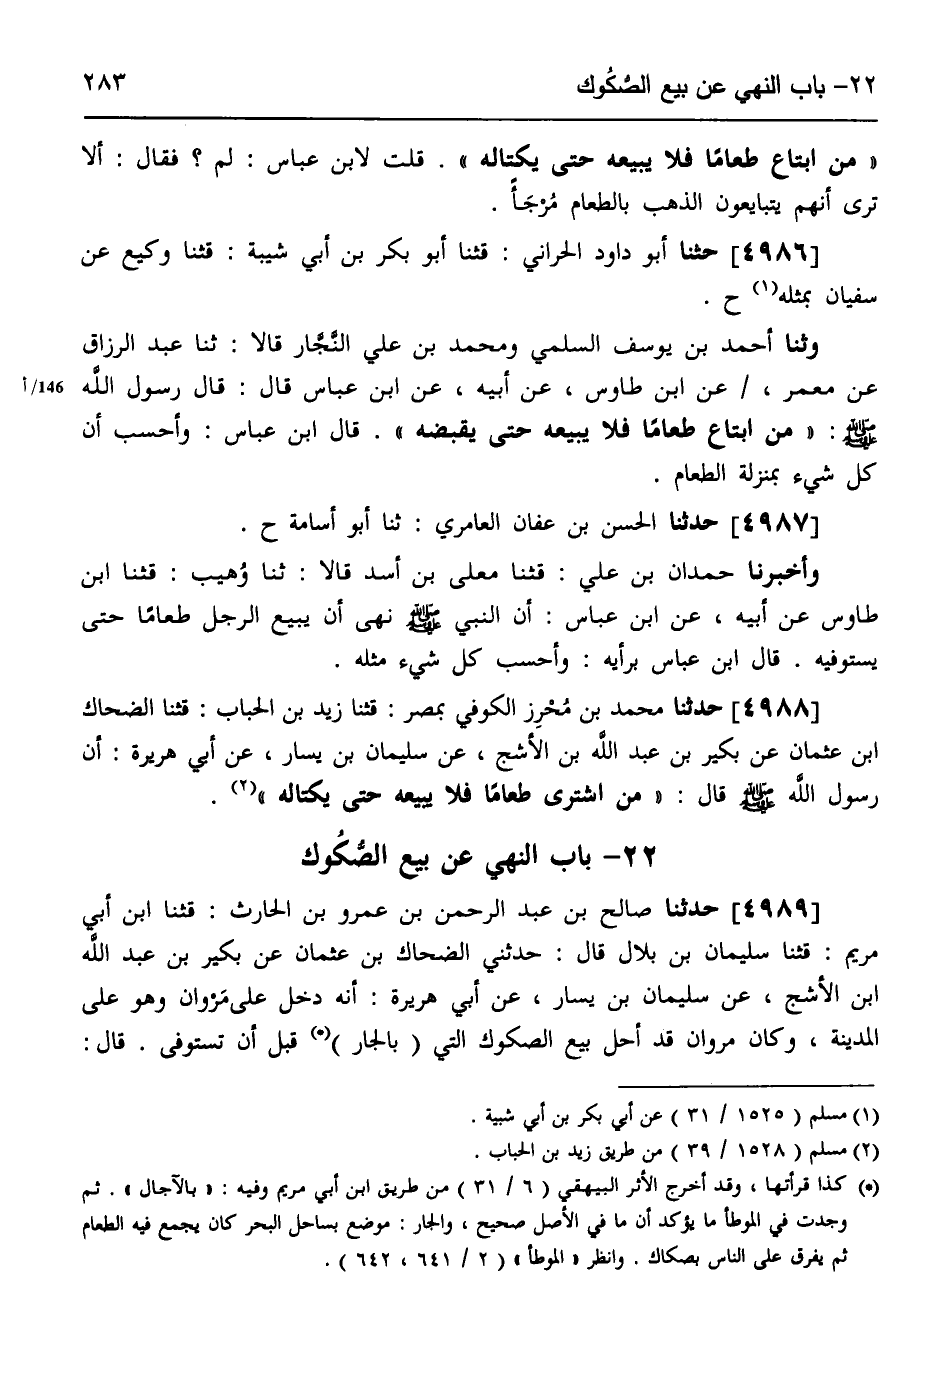 ٢٢- باب النهي عن بيع الصُّكُوك ٢٨٣
« من ابتاع طعامًا فلا يبيعه حتى يكتاله » . قلت لابن عباس : لم ؟ فقال : ألا
ترى أنهم يتبايعون الذهب بالطعام مُرْجَـأً .
[٤٩٨٦] حثنا أبو داود الحراني : قثنا أبو بكر بن أبي شيبة : قثنا وكيع عن
سفيان بمثله(١) ح .
وثنا أحمد بن يوسف السلمي ومحمد بن علي النَّجَّار قالا : ثنا عبد الرزاق
عن معمر ، / عن ابن طاوس ، عن أبيه ، عن ابن عباس قال : قال رسول اللَّه 146/أ
ﷺ : « من ابتاع طعامًا فلا يبيعه حتى يقبضه » . قال ابن عباس : وأحسب أن
كل شيء بمنزلة الطعام .
[٤٩٨٧] حدثنا الحسن بن عفان العامري : ثنا أبو أسامة ح .
وأخبرنا حمدان بن علي : قثنا معلى بن أسد قالا : ثنا وُهيب : قثنا ابن
طاوس عن أبيه ، عن ابن عباس : أن النبي ﷺ نهى أن يبيع الرجل طعامًا حتى
يستوفيه . قال ابن عباس برأيه : وأحسب كل شيء مثله .
[٤٩٨٨] حدثنا محمد بن مُحْرِز الكوفي بمصر : قثنا زيد بن الحباب : قثنا الضحاك
ابن عثمان عن بكير بن عبد اللَّه بن الأشج ، عن سليمان بن يسار ، عن أبي هريرة : أن
رسول اللَّه ﷺ قال : « من اشترى طعامًا فلا يبيعه حتى يكتاله »(٢) .
٢٢- باب النهي عن بيع الصُّكُوك
[٤٩٨٩] حدثنا صالح بن عبد الرحمن بن عمرو بن الحارث : قثنا ابن أبي
مريم : قثنا سليمان بن بلال قال : حدثني الضحاك بن عثمان عن بكير بن عبد اللَّه
ابن الأشج ، عن سليمان بن يسار ، عن أبي هريرة : أنه دخل على مَرْوان وهو على
المدينة ، وكان مروان قد أحل بيع الصكوك التي ( بالجار )(*) قبل أن تستوفى . قال :
(١) مسلم ( ١٥٢٥ / ٣١ ) عن أبي بكر بن أبي شيبة .
(٢) مسلم ( ١٥٢٨ / ٣٩ ) من طريق زيد بن الحباب .
(*) كذا قرأتها ، وقد أخرج الأثر البيهقي ( ٦ / ٣١ ) من طريق ابن أبي مريم وفيه : « بالآجال » . ثم
وجدت في الموطأ ما يؤكد أن ما في الأصل صحيح ، والجار : موضع بساحل البحر كان يجمع فيه الطعام
ثم يفرق على الناس بصكاك . وانظر « الموطأ » ( ٢ / ٦٤١ ، ٦٤٢ ) .